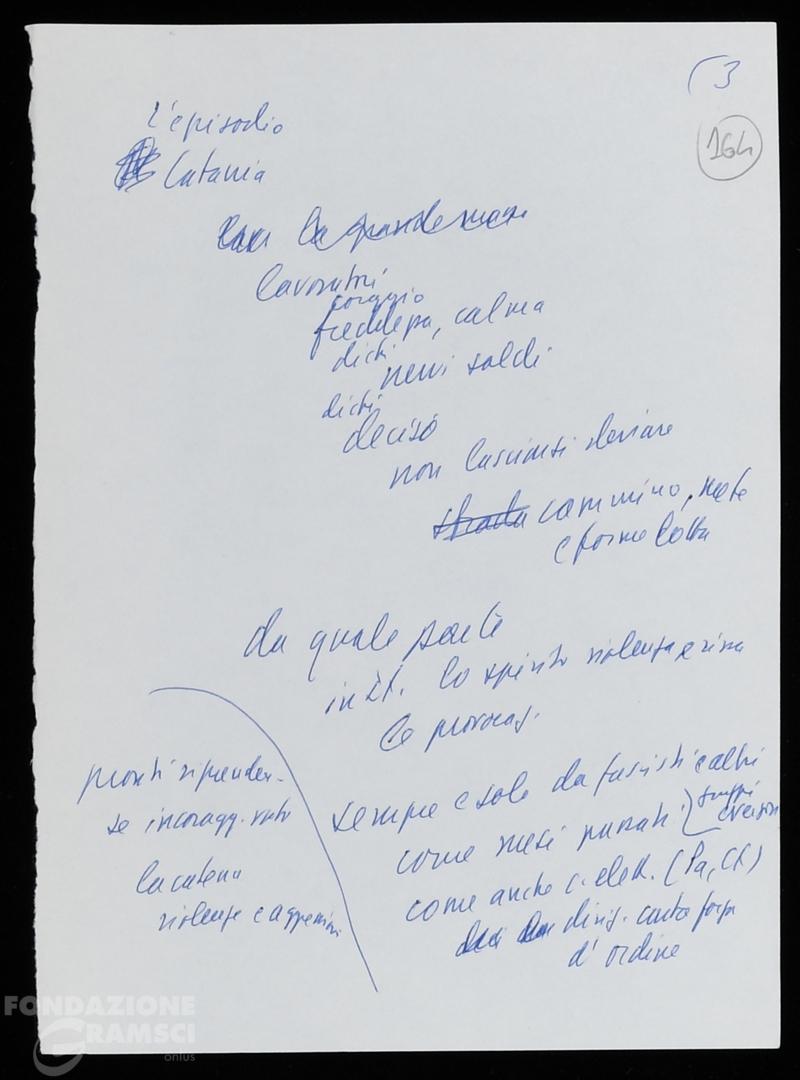 3
164
L'episodio
Catania
lavoratori
coraggio
freddezza, calma
dichi
nervi saldi
dichi
deciso
non lasciarsi deviare
strada cammino, mete
e forme lotta
da quale parte
in It. lo spirito violenza e rissa
le provocaz.
sempre e solo da fascisti e altri
gruppi
eversori
come mesi passati
come anche c. elett. (Pa, Ct)
dirig. contro forze
d'ordine
pronti riprender-
se incoragg.
la catena
violenze e aggressioni
FONDAZIONE
GRAMSCI
onlus